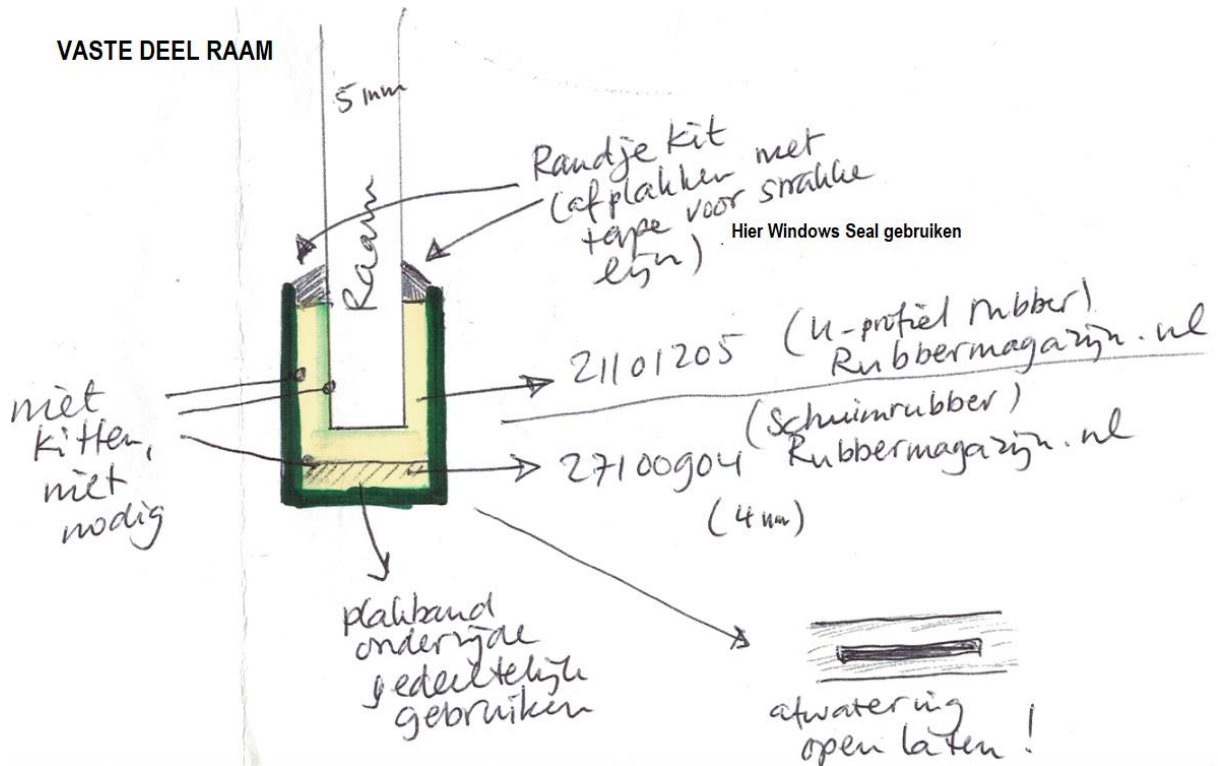 VASTE DEEL RAAM
5 mm
Raam
Randje kit
(afplakken met
tape voor strakke
lijn)
Hier Windows Seal gebruiken
21101205 (U-profiel rubber)
Rubbermagazijn.nl
(Schuimrubber)
27100904 Rubbermagazijn.nl
(4 mm)
niet
kitten,
niet
nodig
plakband
onderzijde
gedeeltelijk
gebruiken
afwatering
open laten!